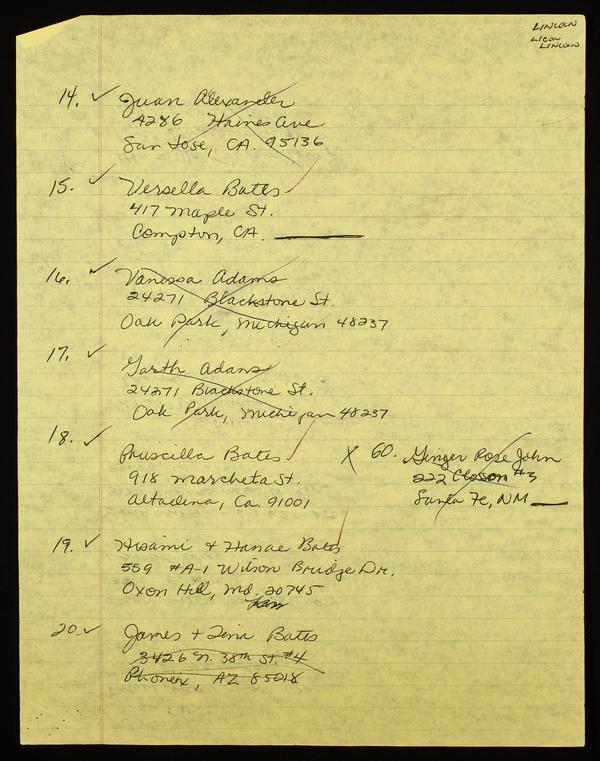 LINCOLN
LINCOLN
14. ✓ Juan Alexander
4286 Haines Ave
San Jose, CA. 95136
15. ✓ Versella Bates
417 Maple St.
Compton, CA.
16. ✓ Vanessa Adams
24271 Blackstone St.
Oak Park, Michigan 48237
17. ✓ Garth Adams
24271 Blackstone St.
Oak Park, Michigan 48237
18. ✓ Priscilla Bates
918 Marcheta St.
Altadena, Ca. 91001
X 60. Ginger Rose John
222 Closson #3
Santa Fe, NM
19. ✓ Hisami + Hanae Bates
559 #A-1 Wilson Bridge Dr.
Oxon Hill, Md. 20745
20. ✓ James + Tina Bates
3426 N. 38th St. #4
Phonex, AZ 85018